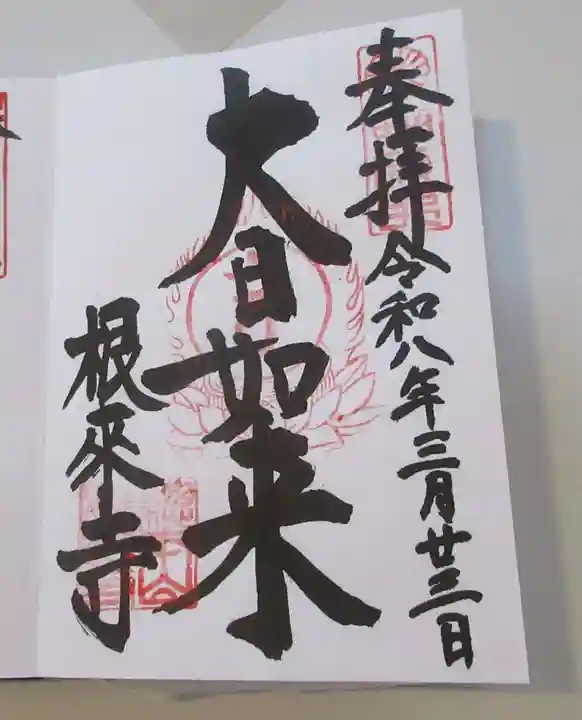 奉拝
令和八年三月廿三日
大日如来
根来寺